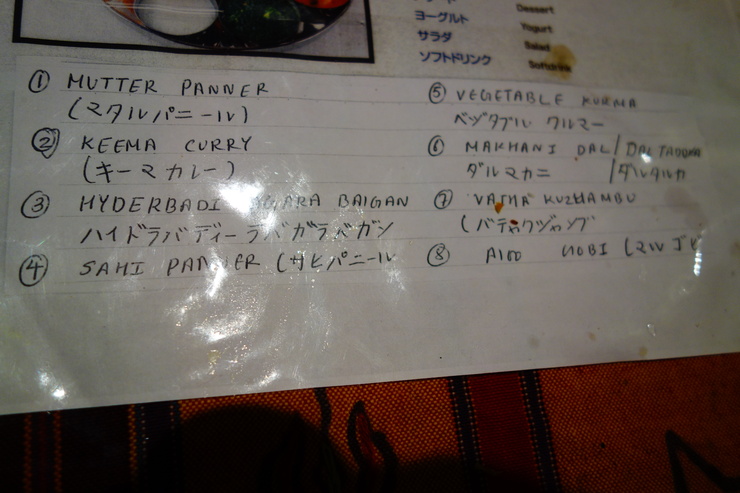 Dessert
ヨーグルト Yogurt
サラダ Salad
ソフトドリンク Softdrink
① MUTTER PANNER
(マタルパニール)
② KEEMA CURRY
(キーマカレー)
③ HYDERBADI BAGARA BAIGAN
ハイドラバディーラバガラバガン
④ SAHI PANNER (サヒパニール
⑤ VEGETABLE KURMA
ベヅタブル クルマー
⑥ MAKHANI DAL/DAL TADDKA
ダルマカニ /ダルタルカ
⑦ VATHA KUZHAMBU
⑧ Aloo GOBI